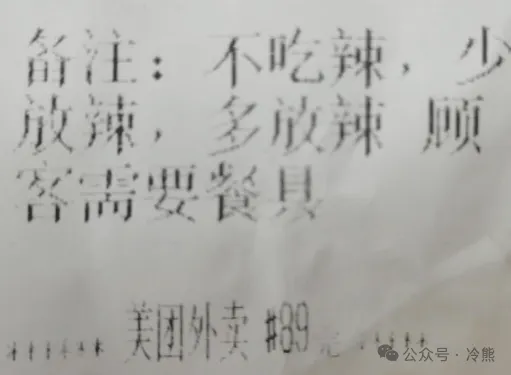 备注：不吃辣，少
放辣，多放辣 顾
客需要餐具
美团外卖 #89
公众号·冷熊